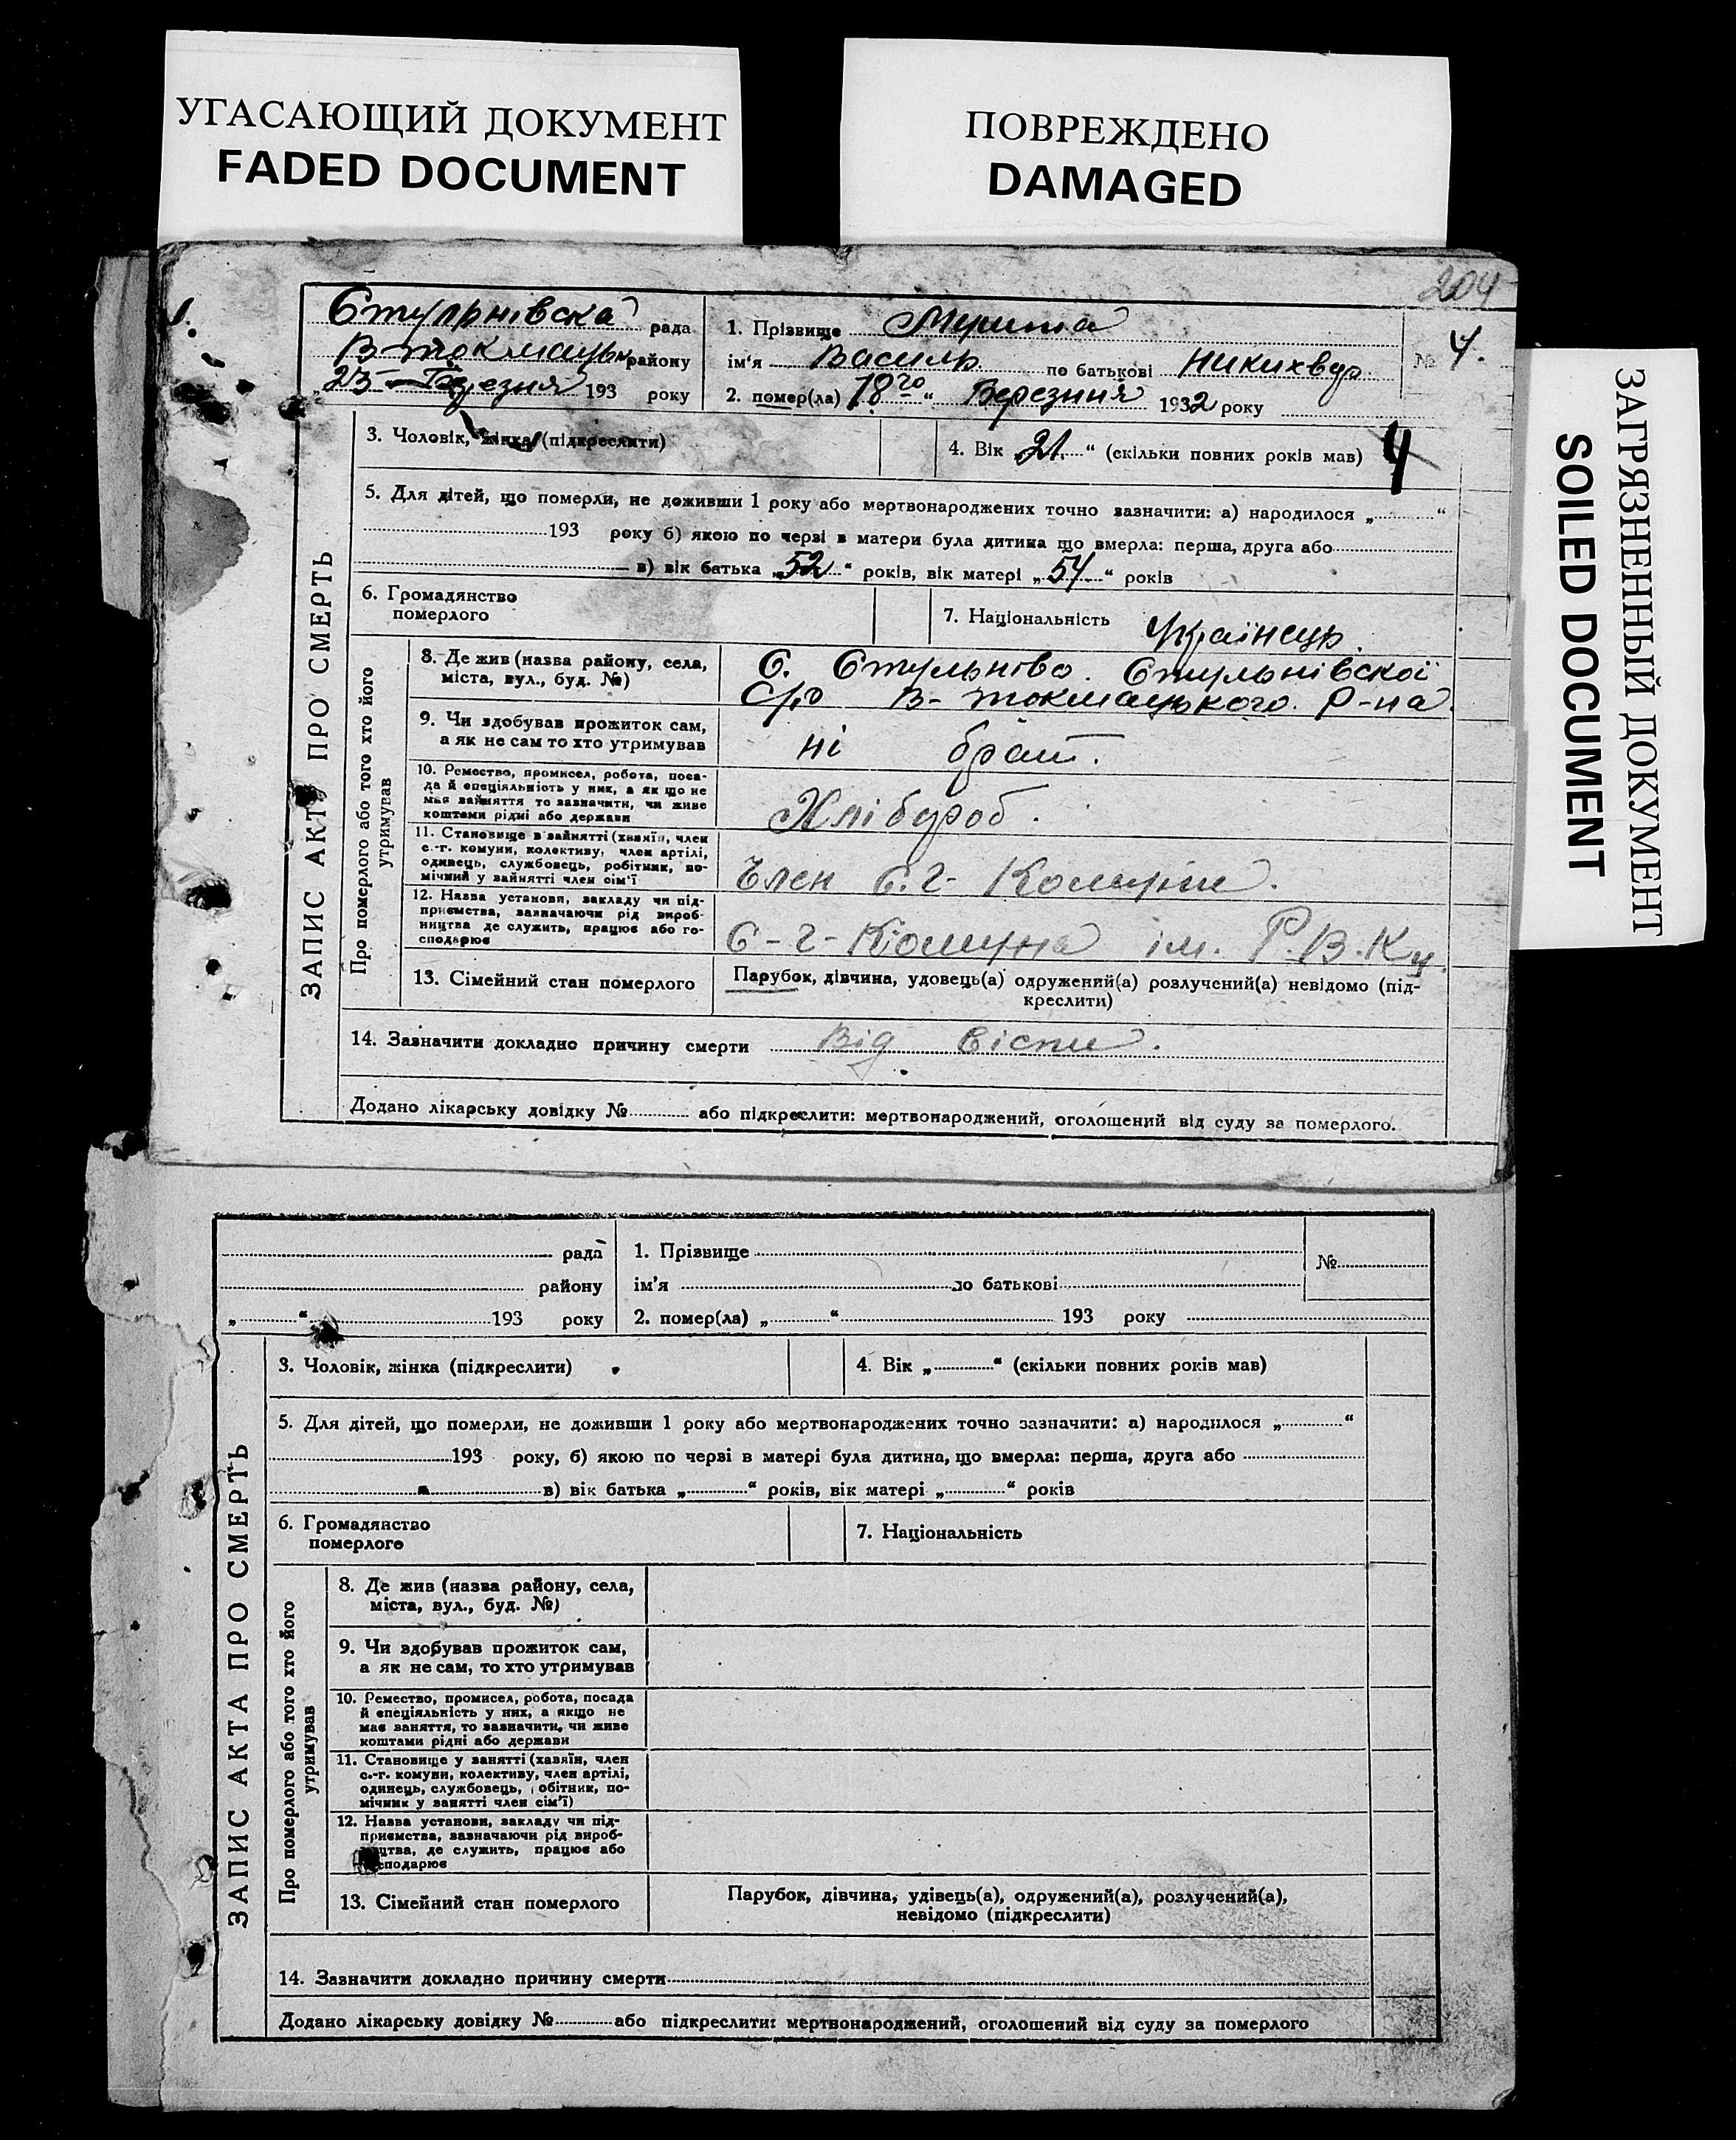 УГАСАЮЩИЙ ДОКУМЕНТ
FADED DOCUMENT
ПОВРЕЖДЕНО
DAMAGED
ЗАГРЯЗНЕННЫЙ ДОКУМЕНТ
SOILED DOCUMENT
204
ЗАПИС АКТУ ПРО СМЕРТЬ
Стульнівска рада
В-токмацьк району
23 Березня 193 року
1. Прізвище
ім'я Василь по батькові Никихвор
2. помер(ла) 18го " Березния 1932 року
№ 4.
3. Чоловік, жінка (підкреслити)
4. Вік „21" (скільки повних років мав) 4
5. Для дітей, що померли, не доживши 1 року або мертвонароджених точно зазначити: а) народилося „ "
193 року б) якою по черві в матери була дитина що вмерла: перша, друга або
в) вік батька „52" років, вік матері „54" років
6. Громадянство
померлого
7. Національність Українець.
Про померлого або того хто його
утримував
8. Де жив (назва району, села,
міста, вул., буд. №)
С. Стульново. Стульнівскої
С/р В-токмацького. Р-на.
9. Чи здобував прожиток сам,
а як не сам то хто утримував
ні брат.
10. Ремество, промисел, робота, поса-
да й спеціяльність у них, а як що не
має зайняття то зазначити, чи живе
коштами рідні або держави
Хлібороб.
11. Становище в зайнятті (хазяїн, член
с.-г. комуни, колективу, член артілі,
одинець, службовець, робітник, по-
мічний у зайнятті член сім'ї
Член С.г- Комуни.
12. Назва установи, закладу чи під-
приємства, зазначаючи рід вироб-
ництва де служить, працює або го-
сподарює
С-г- Комуна ім. Р.В.К.
13. Сімейний стан померлого
Парубок, дівчина, удовець(а) одружений(а) розлучений(а) невідомо (під-
креслити)
14. Зазначити докладно причину смерти Від Віспи.
Додано лікарську довідку № або підкреслити: мертвонароджений, оголошений від суду за померлого.
ЗАПИС АКТА ПРО СМЕРТЬ
рада
району
„ " 193 року
1. Прізвище
ім'я по батькові
2. помер(ла) „ " 193 року
№
3. Чоловік, жінка (підкреслити)
4. Вік „ " (скільки повних років мав)
5. Для дітей, що померли, не доживши 1 року або мертвонароджених точно зазначити: а) народилося „ "
193 року, б) якою по черві в матері була дитина, що вмерла: перша, друга або
в) вік батька „ " років, вік матері „ " років
6. Громадянство
померлого
7. Національність
Про померлого або того хто його
утримував
8. Де жив (назва району, села,
міста, вул., буд. №)
9. Чи здобував прожиток сам,
а як не сам, то хто утримував
10. Ремество, промисел, робота, посада
й спеціяльність у них, а якщо не
має заняття, то зазначити, чи живе
коштами рідні або держави
11. Становище у занятті (хазяїн, член
с.-г. комуни, колективу, член артілі,
одинець, службовець, обітник, по-
мічник у занятті член сім'ї)
12. Назва установи, закладу чи під-
приємства, зазначаючи рід вироб-
цтва, де служить, працює або
сподарює
13. Сімейний стан померлого
Парубок, дівчина, удівець(а), одружений(а), розлучений(а),
невідомо (підкреслити)
14. Зазначити докладно причину смерти
Додано лікарську довідку № або підкреслити: мертвонароджений, оголошений від суду за померлого